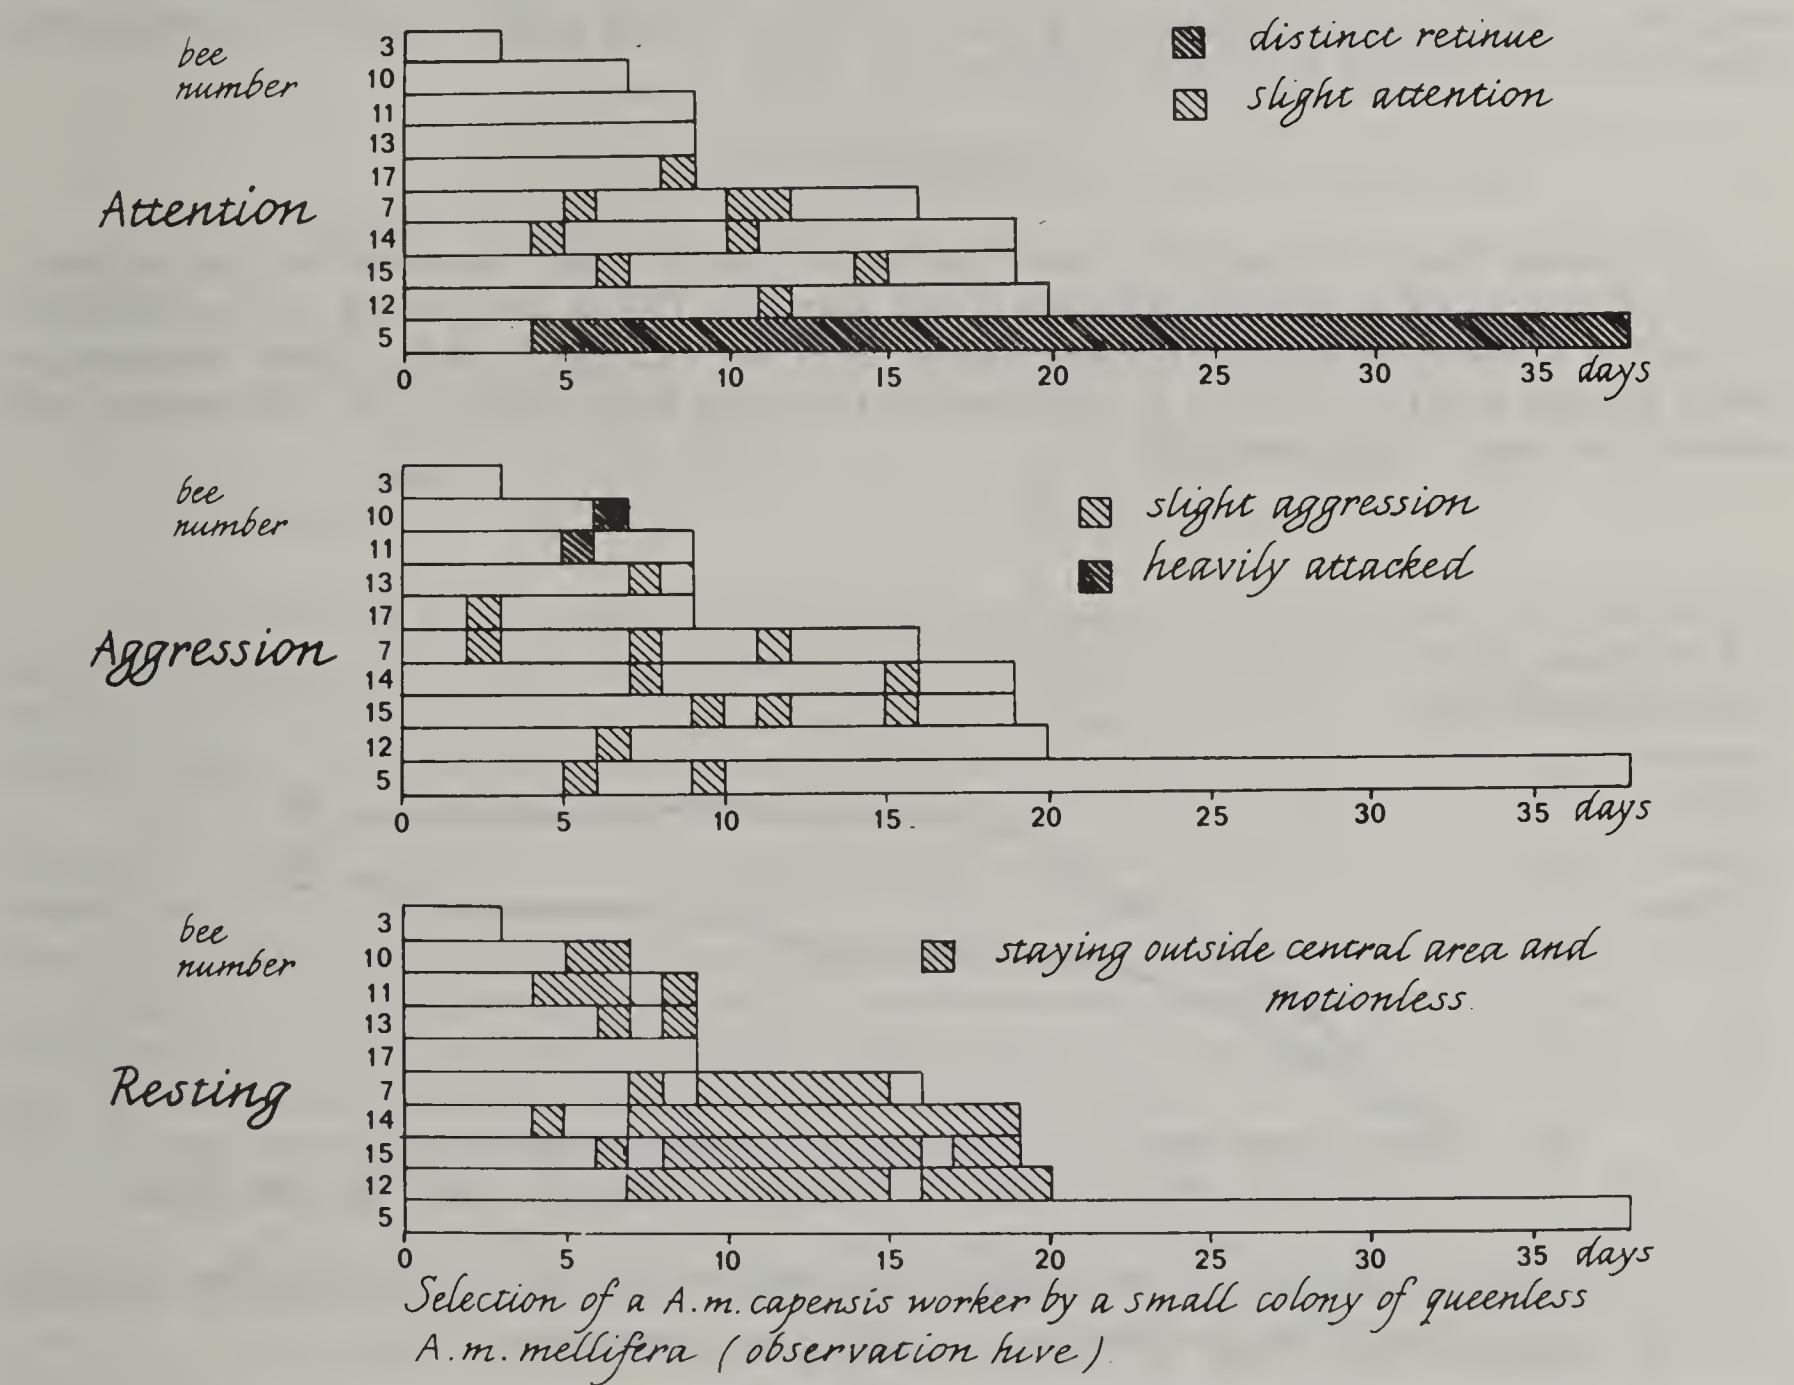 bee
number
3
10
11
13
17
7
14
15
12
5
Attention
distinct retinue
slight attention
0 5 10 15 20 25 30 35 days
bee
number
3
10
11
13
17
7
14
15
12
5
Aggression
slight aggression
heavily attacked
0 5 10 15 20 25 30 35 days
bee
number
3
10
11
13
17
7
14
15
12
5
Resting
staying outside central area and
motionless.
0 5 10 15 20 25 30 35 days
Selection of a A.m. capensis worker by a small colony of queenless
A.m. mellifera (observation hive)